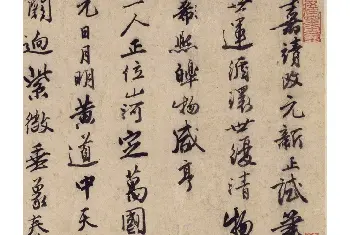 嘉靖改元新正試筆
世運循環世復清物
情熙皞物咸亨
一人正位山河定萬國
元日月明黃道中天
闕迥紫微垂象泰